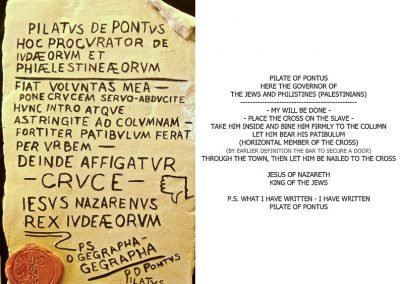 PILATVS DE PONTVS
HOC PROCVRATOR DE
IVDÆORVM ET
PHIÆLESTINEÆORVM
FIAT VOLVNTAS MEA —
PONE CRVCEM SERVO-ABDVCITE
HVNC INTRO ATQVE
ASTRINGITE AD COLVMNAM -
FORTITER PATIBVLVM FERAT
PER VRBEM —
DEINDE AFFIGATVR
— CRVCE —
IESVS NAZARENVS
REX IVDEÆORVM
PS
O GEGRAPHA
GEGRAPHA
P.D PONTVS
PILATVS
PILATE OF PONTUS
HERE THE GOVERNOR OF
THE JEWS AND PHILISTINES (PALESTINIANS)
- MY WILL BE DONE -
- PLACE THE CROSS ON THE SLAVE -
TAKE HIM INSIDE AND BINE HIM FIRMLY TO THE COLUMN
LET HIM BEAR HIS PATIBULUM
(HORIZONTAL MEMBER OF THE CROSS)
(BY EARLIER DEFINITION THE BAR TO SECURE A DOOR)
THROUGH THE TOWN, THEN LET HIM BE NAILED TO THE CROSS
JESUS OF NAZARETH
KING OF THE JEWS
P.S. WHAT I HAVE WRITTEN - I HAVE WRITTEN
PILATE OF PONTUS